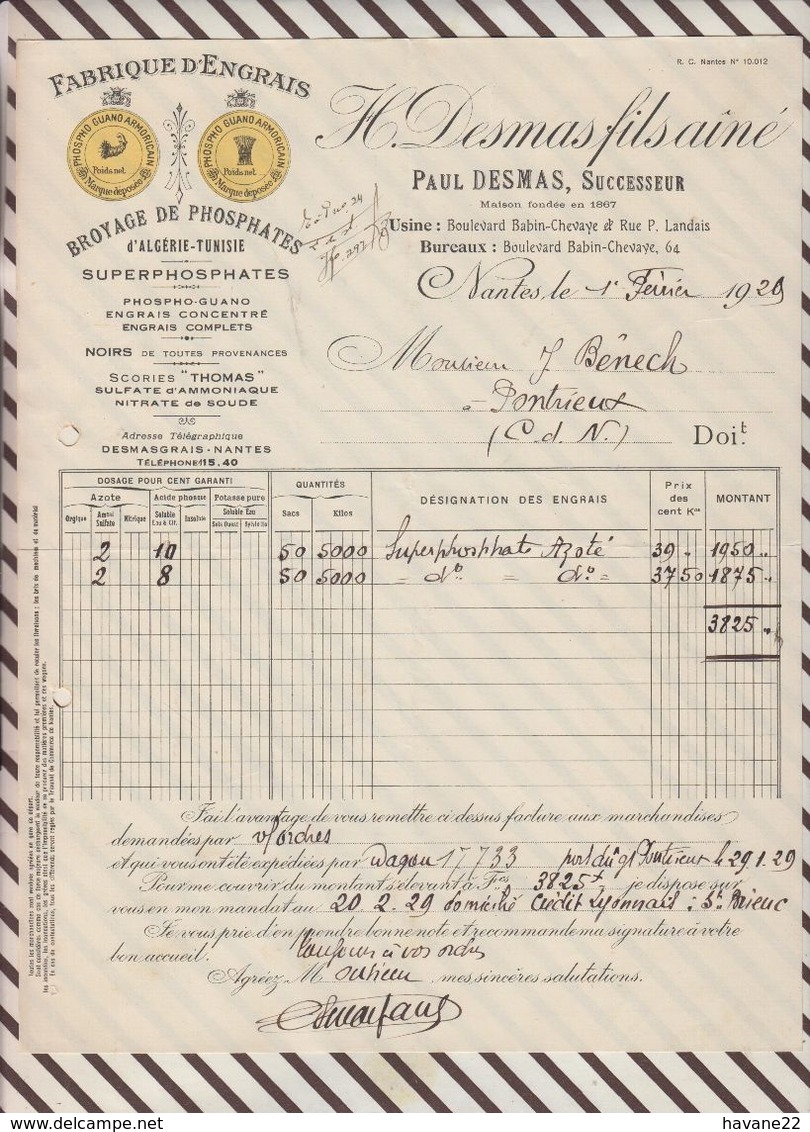 R. C. Nantes N° 10.012
FABRIQUE D'ENGRAIS
PHOSPHO GUANO ARMORICAIN
Poids net
Marque déposée
PHOSPHO GUANO ARMORICAIN
Poids net
Marque déposée
BROYAGE DE PHOSPHATES
d'ALGÉRIE-TUNISIE
SUPERPHOSPHATES
PHOSPHO-GUANO
ENGRAIS CONCENTRÉ
ENGRAIS COMPLETS
NOIRS DE TOUTES PROVENANCES
SCORIES "THOMAS"
SULFATE d'AMMONIAQUE
NITRATE de SOUDE
Adresse Télégraphique
DESMASGRAIS-NANTES
TÉLÉPHONE 115.40
H. Desmas fils aîné
PAUL DESMAS, SUCCESSEUR
Maison fondée en 1867
Usine : Boulevard Babin-Chevaye et Rue P. Landais
Bureaux : Boulevard Babin-Chevaye, 64
Nantes, le 1er Février 1929
Monsieur J Bénech
à Pontrieux
(C. d. N.) Doit.
DOSAGE POUR CENT GARANTI QUANTITÉS DÉSIGNATION DES ENGRAIS Prix des cent Kos MONTANT
Azote Acide phosque Potasse pure Sacs Kilos
Orgique Amal Sulfate Nitrique Soluble Eau & Cit. Insoluble Soluble Eau
2 10 50 5000 Superphosphate Azoté 39 " 1950 "
2 8 50 5000 = do = do = 37 50 1875 "
3825 "
Fai l'avantage de vous remettre ci dessus facture aux marchandises
demandées par v/ ordres
et qui vous ont été expédiées par wagon 17733 port dû gr Pontrieux le 29.1.29
Pour me couvrir du montant s'élevant à Fcs 3825 + je dispose sur
vous en mon mandat au 20-2-29 domicilié Crédit Lyonnais : St Brieuc
Je vous prie d'en prendre bonne note et recommande ma signature à votre
bon accueil. Toujours à vos ordres
Agréez, Monsieur, mes sincères salutations.
havane22